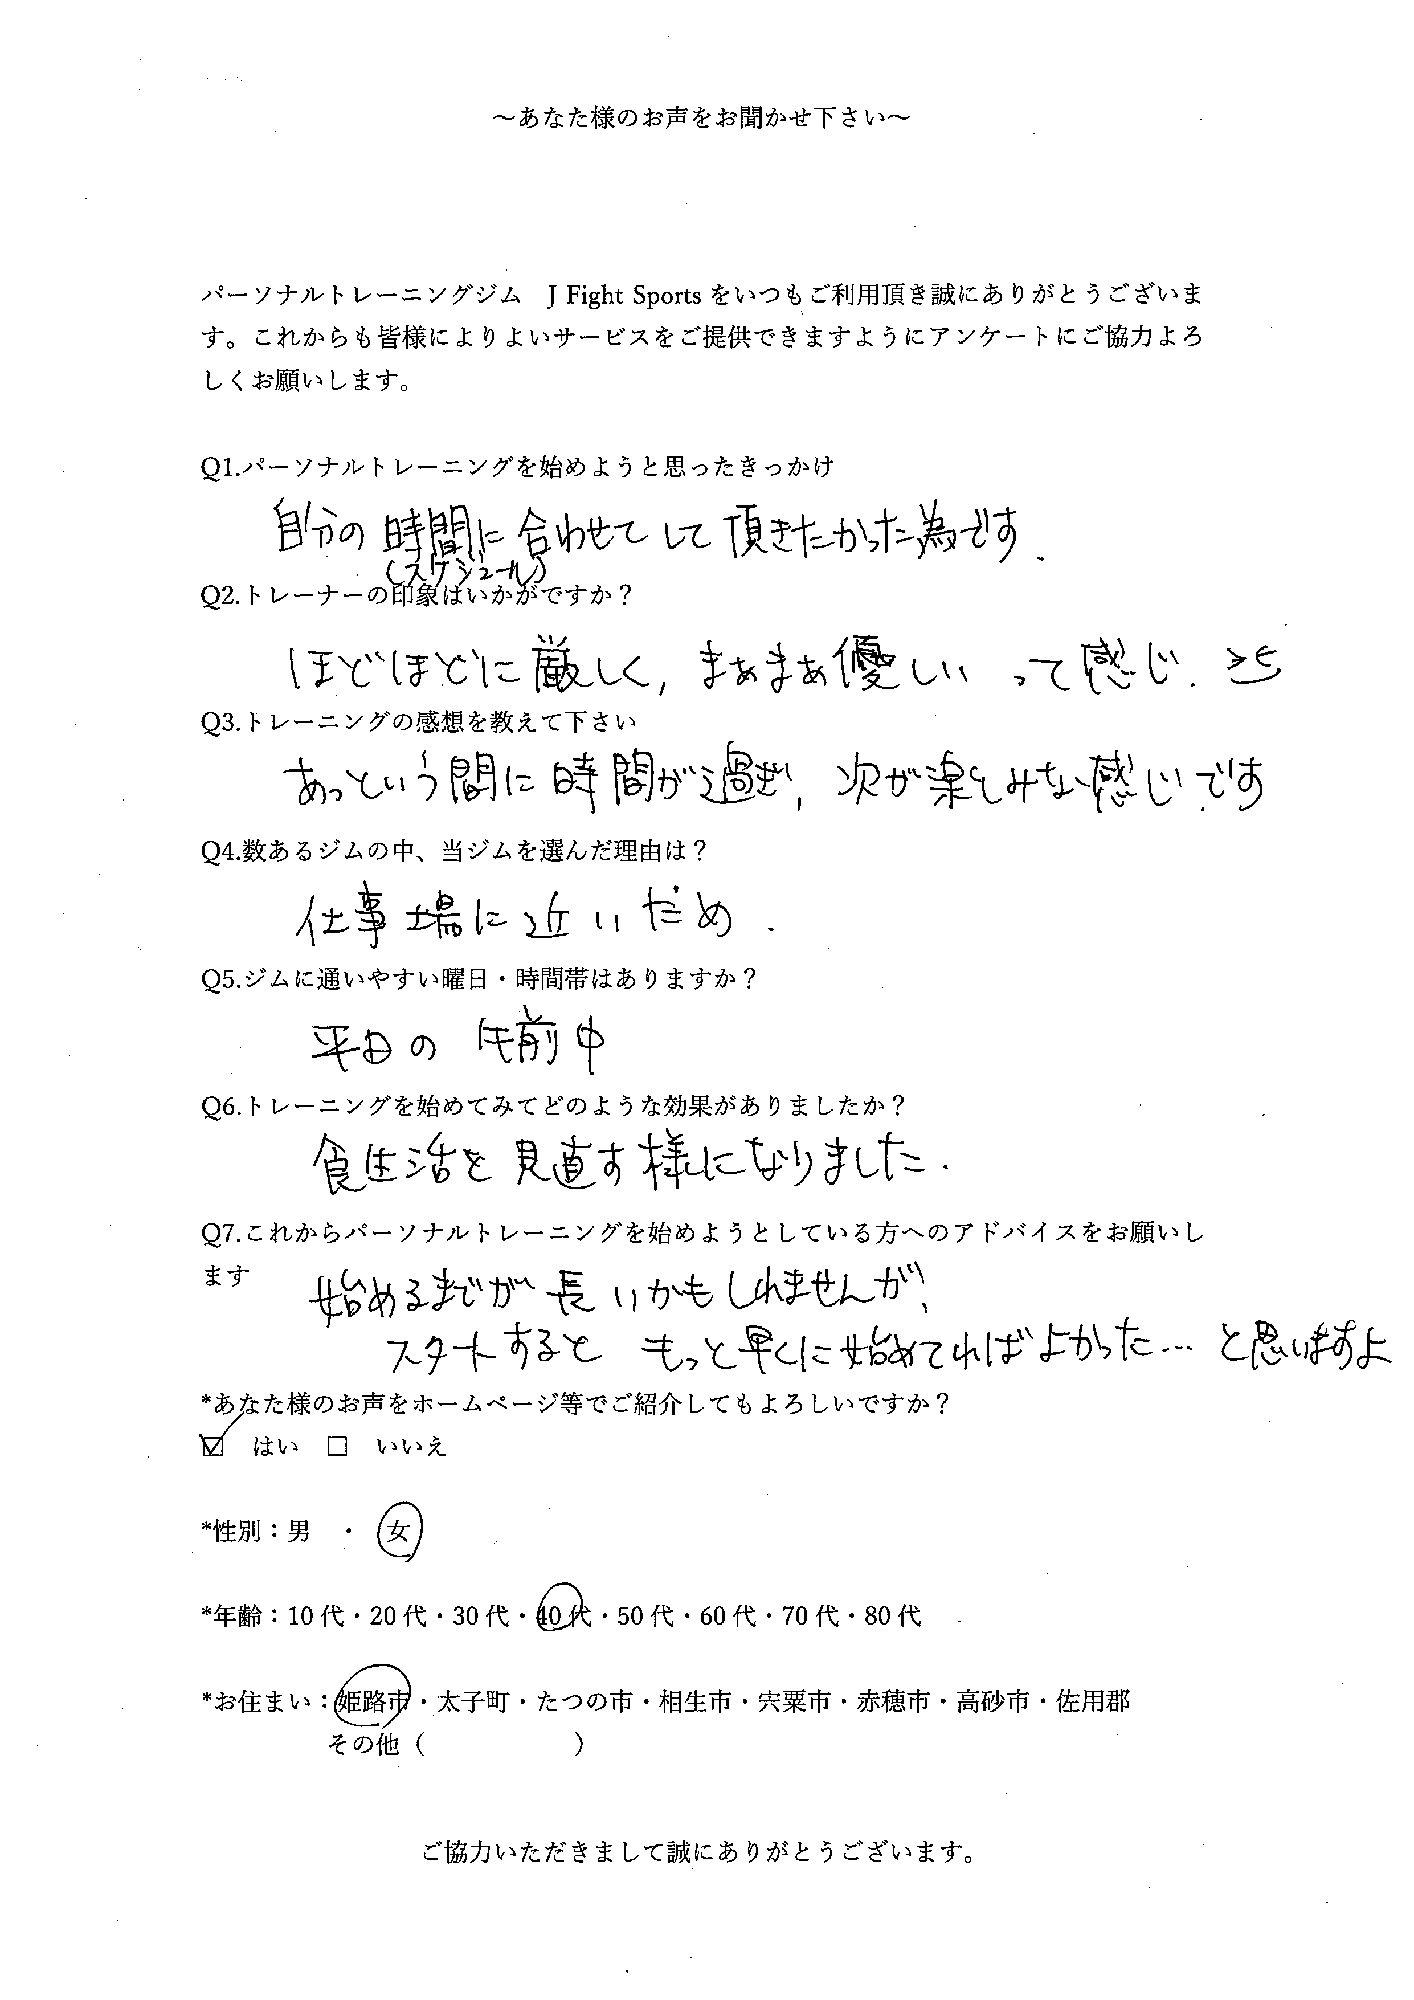 ～あなた様のお声をお聞かせ下さい～
パーソナルトレーニングジム　J Fight Sports をいつもご利用頂き誠にありがとうございま
す。これからも皆様によりよいサービスをご提供できますようにアンケートにご協力よろ
しくお願いします。
Q1.パーソナルトレーニングを始めようと思ったきっかけ
自分の時間に合わせてして頂きたかった為です.
(スケジュール)
Q2.トレーナーの印象はいかがですか？
ほどほどに厳しく, まぁまぁ優しい って感じ.
Q3.トレーニングの感想を教えて下さい
あっという間に時間が過ぎ, 次が楽しみな感じです
Q4.数あるジムの中、当ジムを選んだ理由は？
仕事場に近いだめ.
Q5.ジムに通いやすい曜日・時間帯はありますか？
平日の 午前中
Q6.トレーニングを始めてみてどのような効果がありましたか？
食生活を見直す様になりました.
Q7.これからパーソナルトレーニングを始めようとしている方へのアドバイスをお願いし
ます
始めるまでが長いかもしれませんが,
スタートすると もっと早くに始めてればよかった… と思いますよ
*あなた様のお声をホームページ等でご紹介してもよろしいですか？
☑ はい □ いいえ
*性別：男 ・ 女
*年齢：10 代・20 代・30 代・40 代・50 代・60 代・70 代・80 代
*お住まい：姫路市・太子町・たつの市・相生市・宍粟市・赤穂市・高砂市・佐用郡
その他（　　　　　　）
ご協力いただきまして誠にありがとうございます。